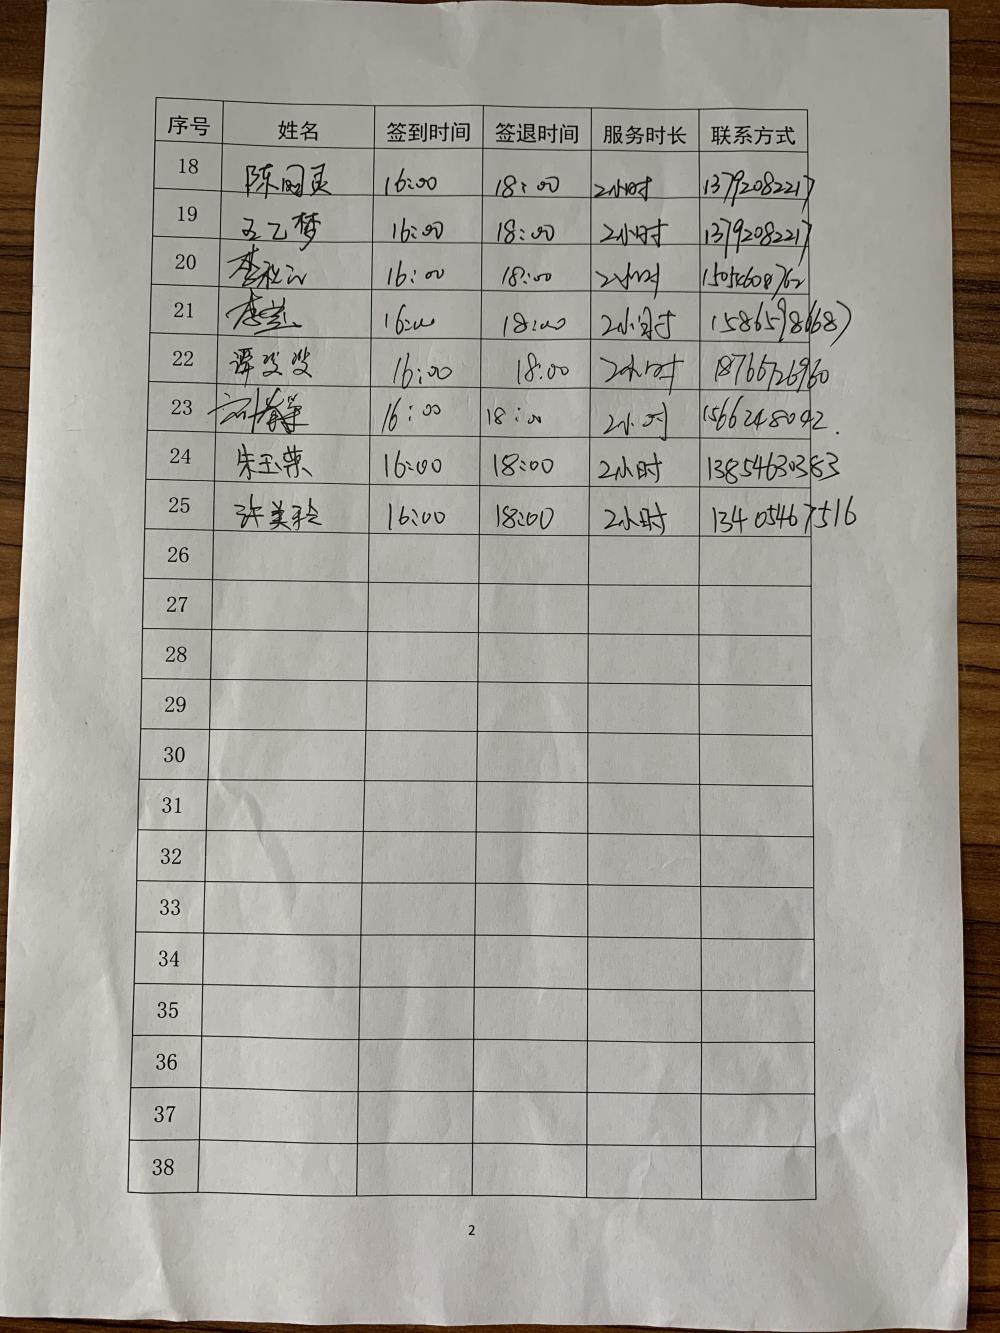 序号 姓名 签到时间 签退时间 服务时长 联系方式
18 陈 灵 16:00 18:00 2小时 13792082217
19 王乙梦 16:00 18:00 2小时 13792082217
20 李秋云 16:00 18:00 2小时
21 李 16:00 18:00 2小时
22 谭双双 16:00 18:00 2小时 18766726960
23 16:00 18:00 2小时 1566248042
24 朱玉荣 16:00 18:00 2小时 13854630383
25 张美玲 16:00 18:00 2小时 13405467516
26
27
28
29
30
31
32
33
34
35
36
37
38
2